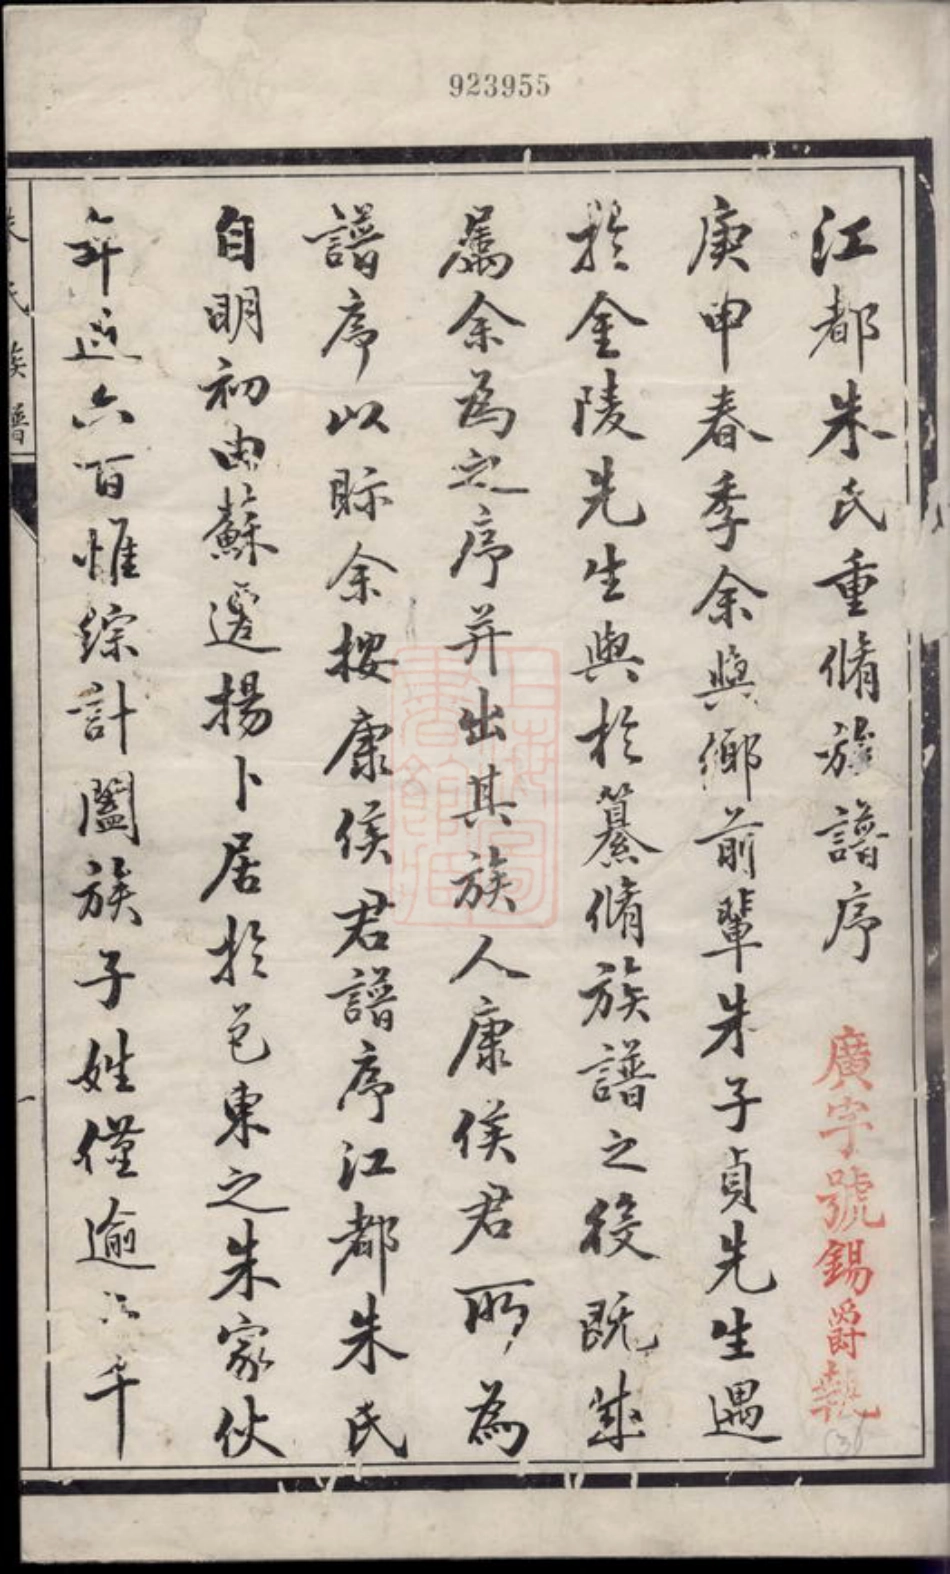 923955
江都朱氏重脩族譜序
廣字號錫爵執
庚申春季余與鄉前輩朱子貞先生遇
於金陵先生與於纂脩族譜之役既蕆
屬余為之序并出其族人康侯君所為
譜序以眎余按康侯君譜序江都朱氏
自明初由蘇遷揚卜居於邑東之朱家伙
年近六百惟綜計闔族子姓僅逾六千
朱氏族譜
一